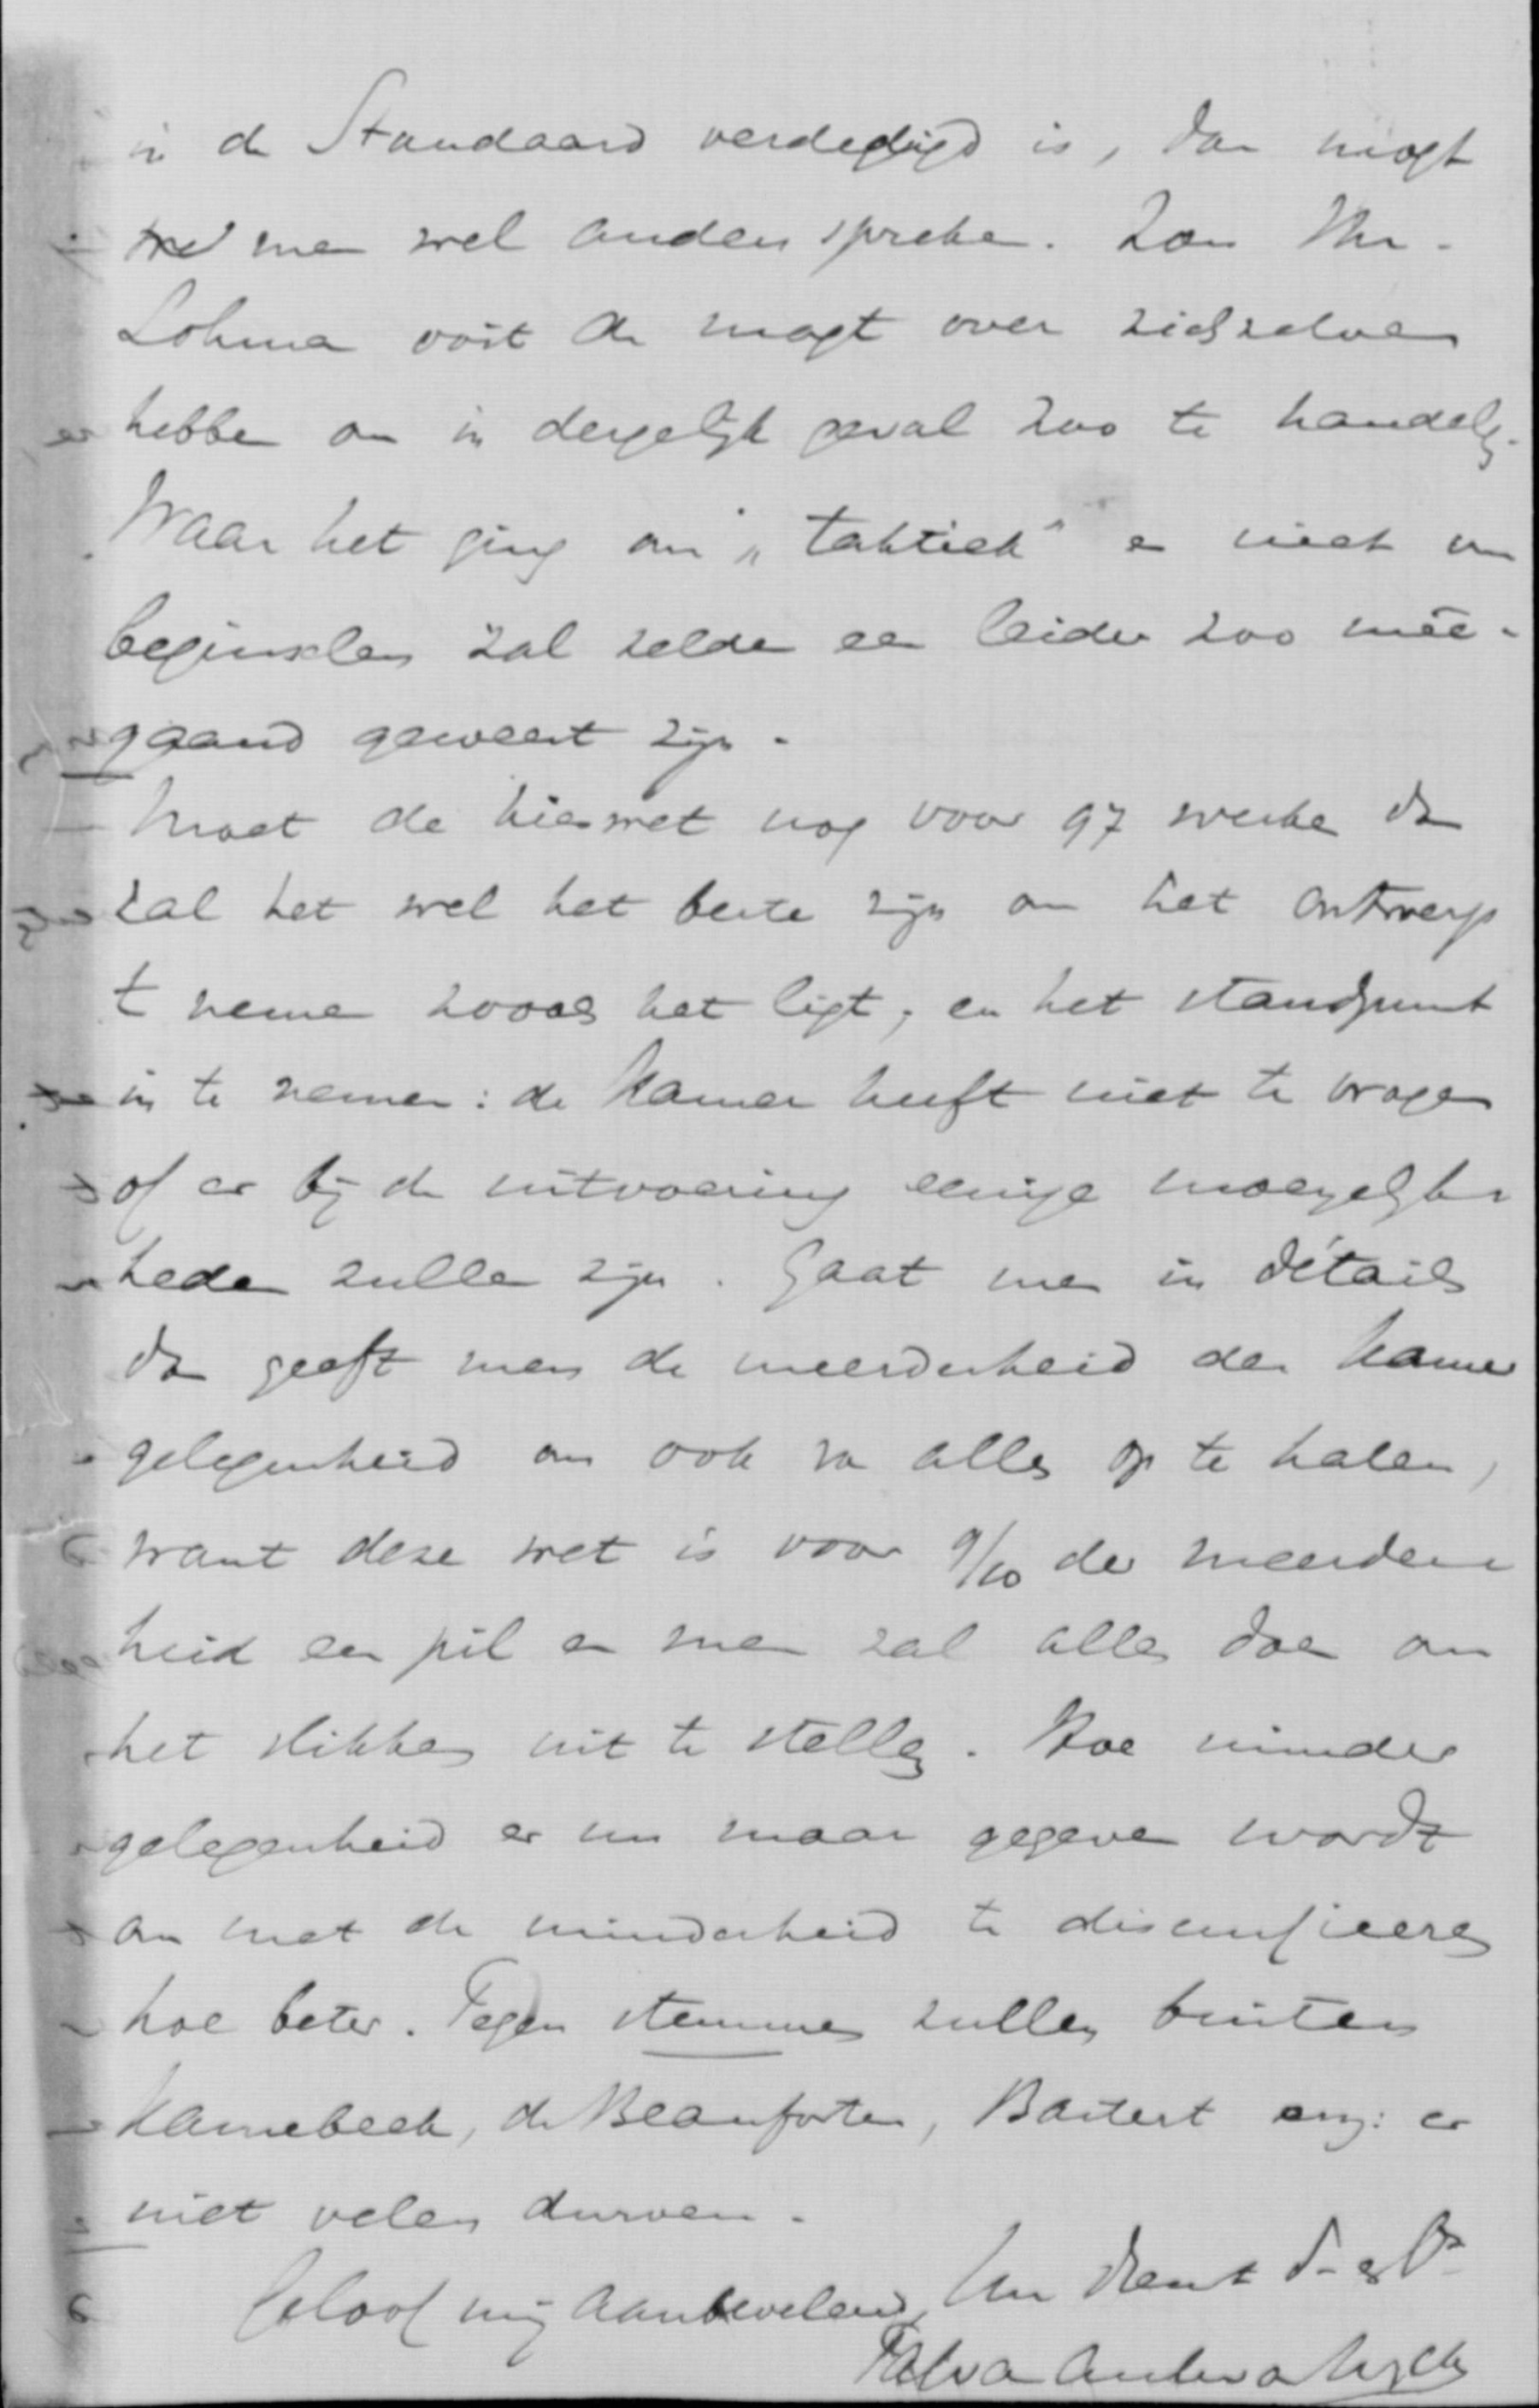 in de Standaard verdedigd is, dan mogt
men wel anders spreken. Zou Mr.
Lohman ooit de magt over zichzelven
hebben om in dergelijk geval zoo te handelen.
Waar het ging om „taktiek" en niet om
beginselen zal zelden een leider zoo mêe-
gaand geweest zijn.
Moet de kieswet nog voor 97 werken dan
zal het wel het beste zijn om het ontwerp
te nemen zooals het ligt, en het standpunt
in te nemen: de Kamer heeft niet te vragen
of er bij de uitvoering eenige moeijelijk-
heden zullen zijn. Gaat men in détails
dan geeft men de meerderheid der Kamer
gelegenheid om ook van alles op te halen,
want deze wet is voor 9/10 der meerder-
heid een pil en men zal alles doen om
het slikken uit te stellen. Hoe minder
gelegenheid er nu maar gegeven wordt
om met de minderheid te discussieeren
hoe beter. Tegen stemmen zullen buiten
Karnebeek, de Beauforten, Bastert enz: er
niet velen durven.
Geloof mij aanbevelend, Uw